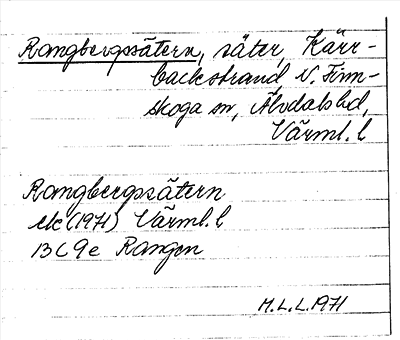 Rangbergssätern, säter, Kärr-
backstrand N. Finn-
skoga sn, Älvdals hd,
Värml. l
Rangbergssätern
ek (1971) Värml. l
13C 9e Rangen
M.L.L. 1971